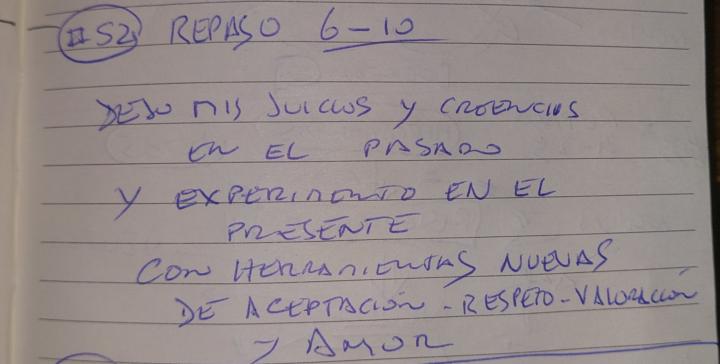 #52 REPASO 6-10
DEJO MIS JUICIOS Y CREENCIAS
EN EL PASADO
Y EXPERIMENTO EN EL
PRESENTE
CON HERRAMIENTAS NUEVAS
DE ACEPTACIÓN - RESPETO - VALORACIÓN
Y AMOR